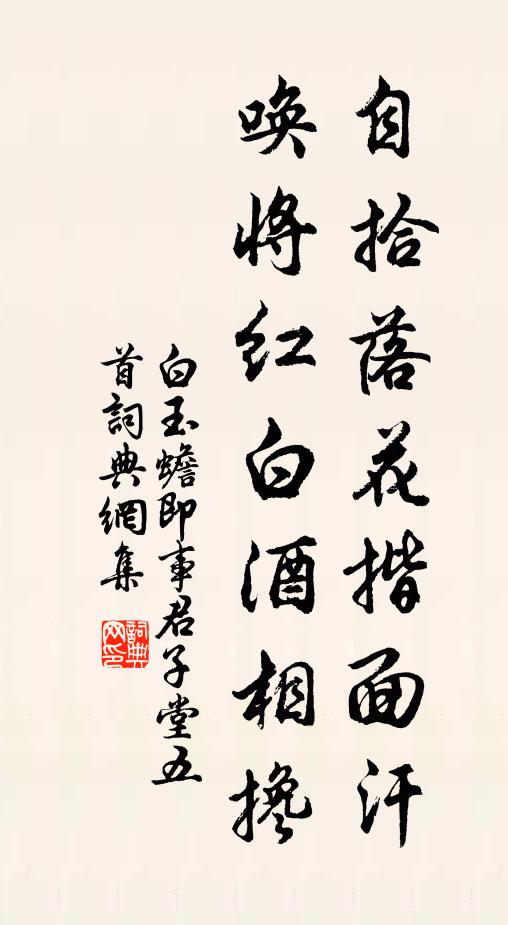 自拾落花揩面汗
唤將红白酒相搀
白玉蟾即事君子堂五
首詞典網集
詞典
网印